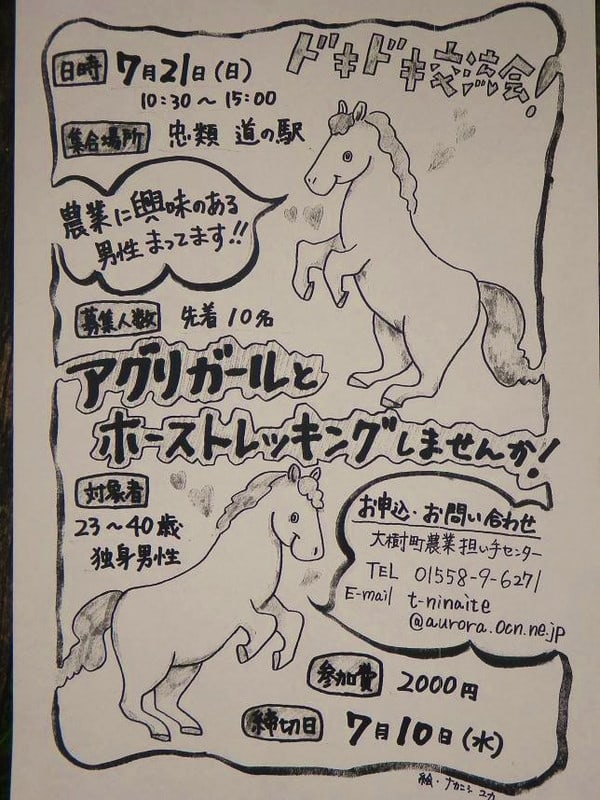 ドキドキ交流会!
日時 7月21日(日)
10:30〜15:00
集合場所 忠類 道の駅
農業に興味のある
男性まってます!!
募集人数 先着10名
アグリガールと
ホーストレッキングしませんか!
対象者
23〜40歳
独身男性
お申込・お問い合わせ
大樹町農業担い手センター
TEL 01558-9-6271
E-mail t-ninaite
@aurora.ocn.ne.jp
参加費 2000円
締切日 7月10日(水)
絵・ナカニシ ユカ